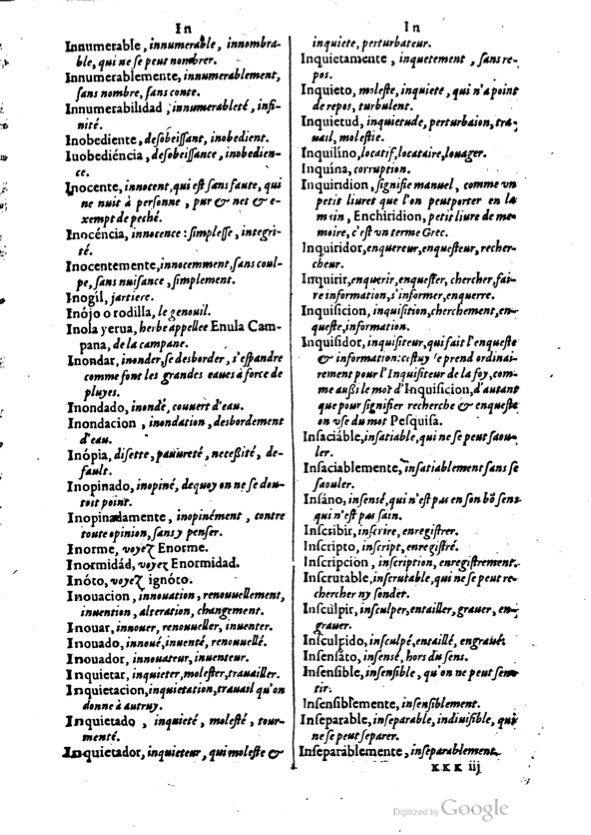 In
Innumerable, innumerable, innombra-
ble, qui ne se peut nombrer.
Innumerablemente, innumerablement,
sans nombre, sans conte.
Innumerabilidad, innumerableté, infi-
nité.
Inobediente, desobeissant, inobedient.
Iuobediéncia, desobeissance, inobedien-
ce.
Inocente, innocent, qui est sans faute, qui
ne nuit à personne, pur & net & e-
xempt de peché.
Inocéncia, innocence: simplesse, integri-
té.
Inocentemente, innocemment, sans coul-
pe, sans nuisance, simplement.
Inogil, jartiere.
Inójo o rodilla, le genouil.
Inola yerua, herbe appellee Enula Cam-
pana, de la campane.
Inondar, inonder, se desborder, s'espandre
comme font les grandes eaues à force de
pluyes.
Inondado, inondé, couuert d'eau.
Inondacion, inondation, desbordement
d'eau.
Inópia, disette, pauureté, necessité, de-
fault.
Inopinado, inopiné, dequoy on ne se dou-
toit point.
Inopinadamente, inopinément, contre
toute opinion, sans y penser.
Inorme, voyez Enorme.
Inormidád, voyez Enormidad.
Inóto, voyez ignóto.
Inouacion, innouation, renouuellement,
inuention, alteration, changement.
Inouar, innouer, renouueller, inuenter.
Inouado, innoué, inuenté, renouuellé.
Inouador, innouateur, inuenteur.
Inquietar, inquieter, molester, trauailler.
Inquietacion, inquietation, trauail qu'on
donne à autruy.
Inquietado, inquieté, molesté, tour-
menté.
Inquietador, inquieteur, qui moleste &
In
inquiete, perturbateur.
Inquietamente, inquetement, sans re-
pos.
Inquieto, moleste, inquiete, qui n'a point
de repos, turbulent.
Inquietud, inquietude, perturbaion, tra-
uail, molestie.
Inquilíno, locatif, locataire, louager.
Inquína, corruption.
Inquiridion, signifie manuel, comme vn
petit liuret que l'on peut porter en la
main, Enchiridion, petit liure de me-
moire, c'est vn terme Grec.
Inquiridor, enquereur, enquesteur, recher-
cheur.
Inquirir, enquerir, enquester, chercher, fai-
re information, s'informer, enquerre.
Inquisicion, inquisition, cherchement, en-
queste, information.
Inquisidor, inquisiteur, qui fait l'enqueste
& information: cestuy se prend ordinai-
rement pour l'Inquisiteur de la foy, com-
me aussi le mot d'Inquisicion, d'autant
que pour signifier recherche & enqueste
on vse du mot Pesquisa.
Insaciáble, insatiable, qui ne se peut saou-
ler.
Insaciablemente, insatiablement sans se
saouler.
Insáno, insensé, qui n'est pas en son bõ sens
qui n'est pas sain.
Inscsibir, inscrire, enregistrer.
Inscripto, inscript, enregistré.
Inscripcion, inscription, enregistrement.
Inscrutable, inscrutable, qui ne se peut re-
chercher ny sonder.
Insculpir, insculper, entailler, grauer, en-
grauer.
Insculpido, insculpé, entaillé, engraué.
Insensáto, insensé, hors du sens.
Insensible, insensible, qu'on ne peut sen-
tir.
Insensiblemente, insensiblement.
Inseparable, inseparable, indiuisible, qui
ne se peut separer.
Inseparáblemente, inseparablement.
xxx iij
Digitized by Google